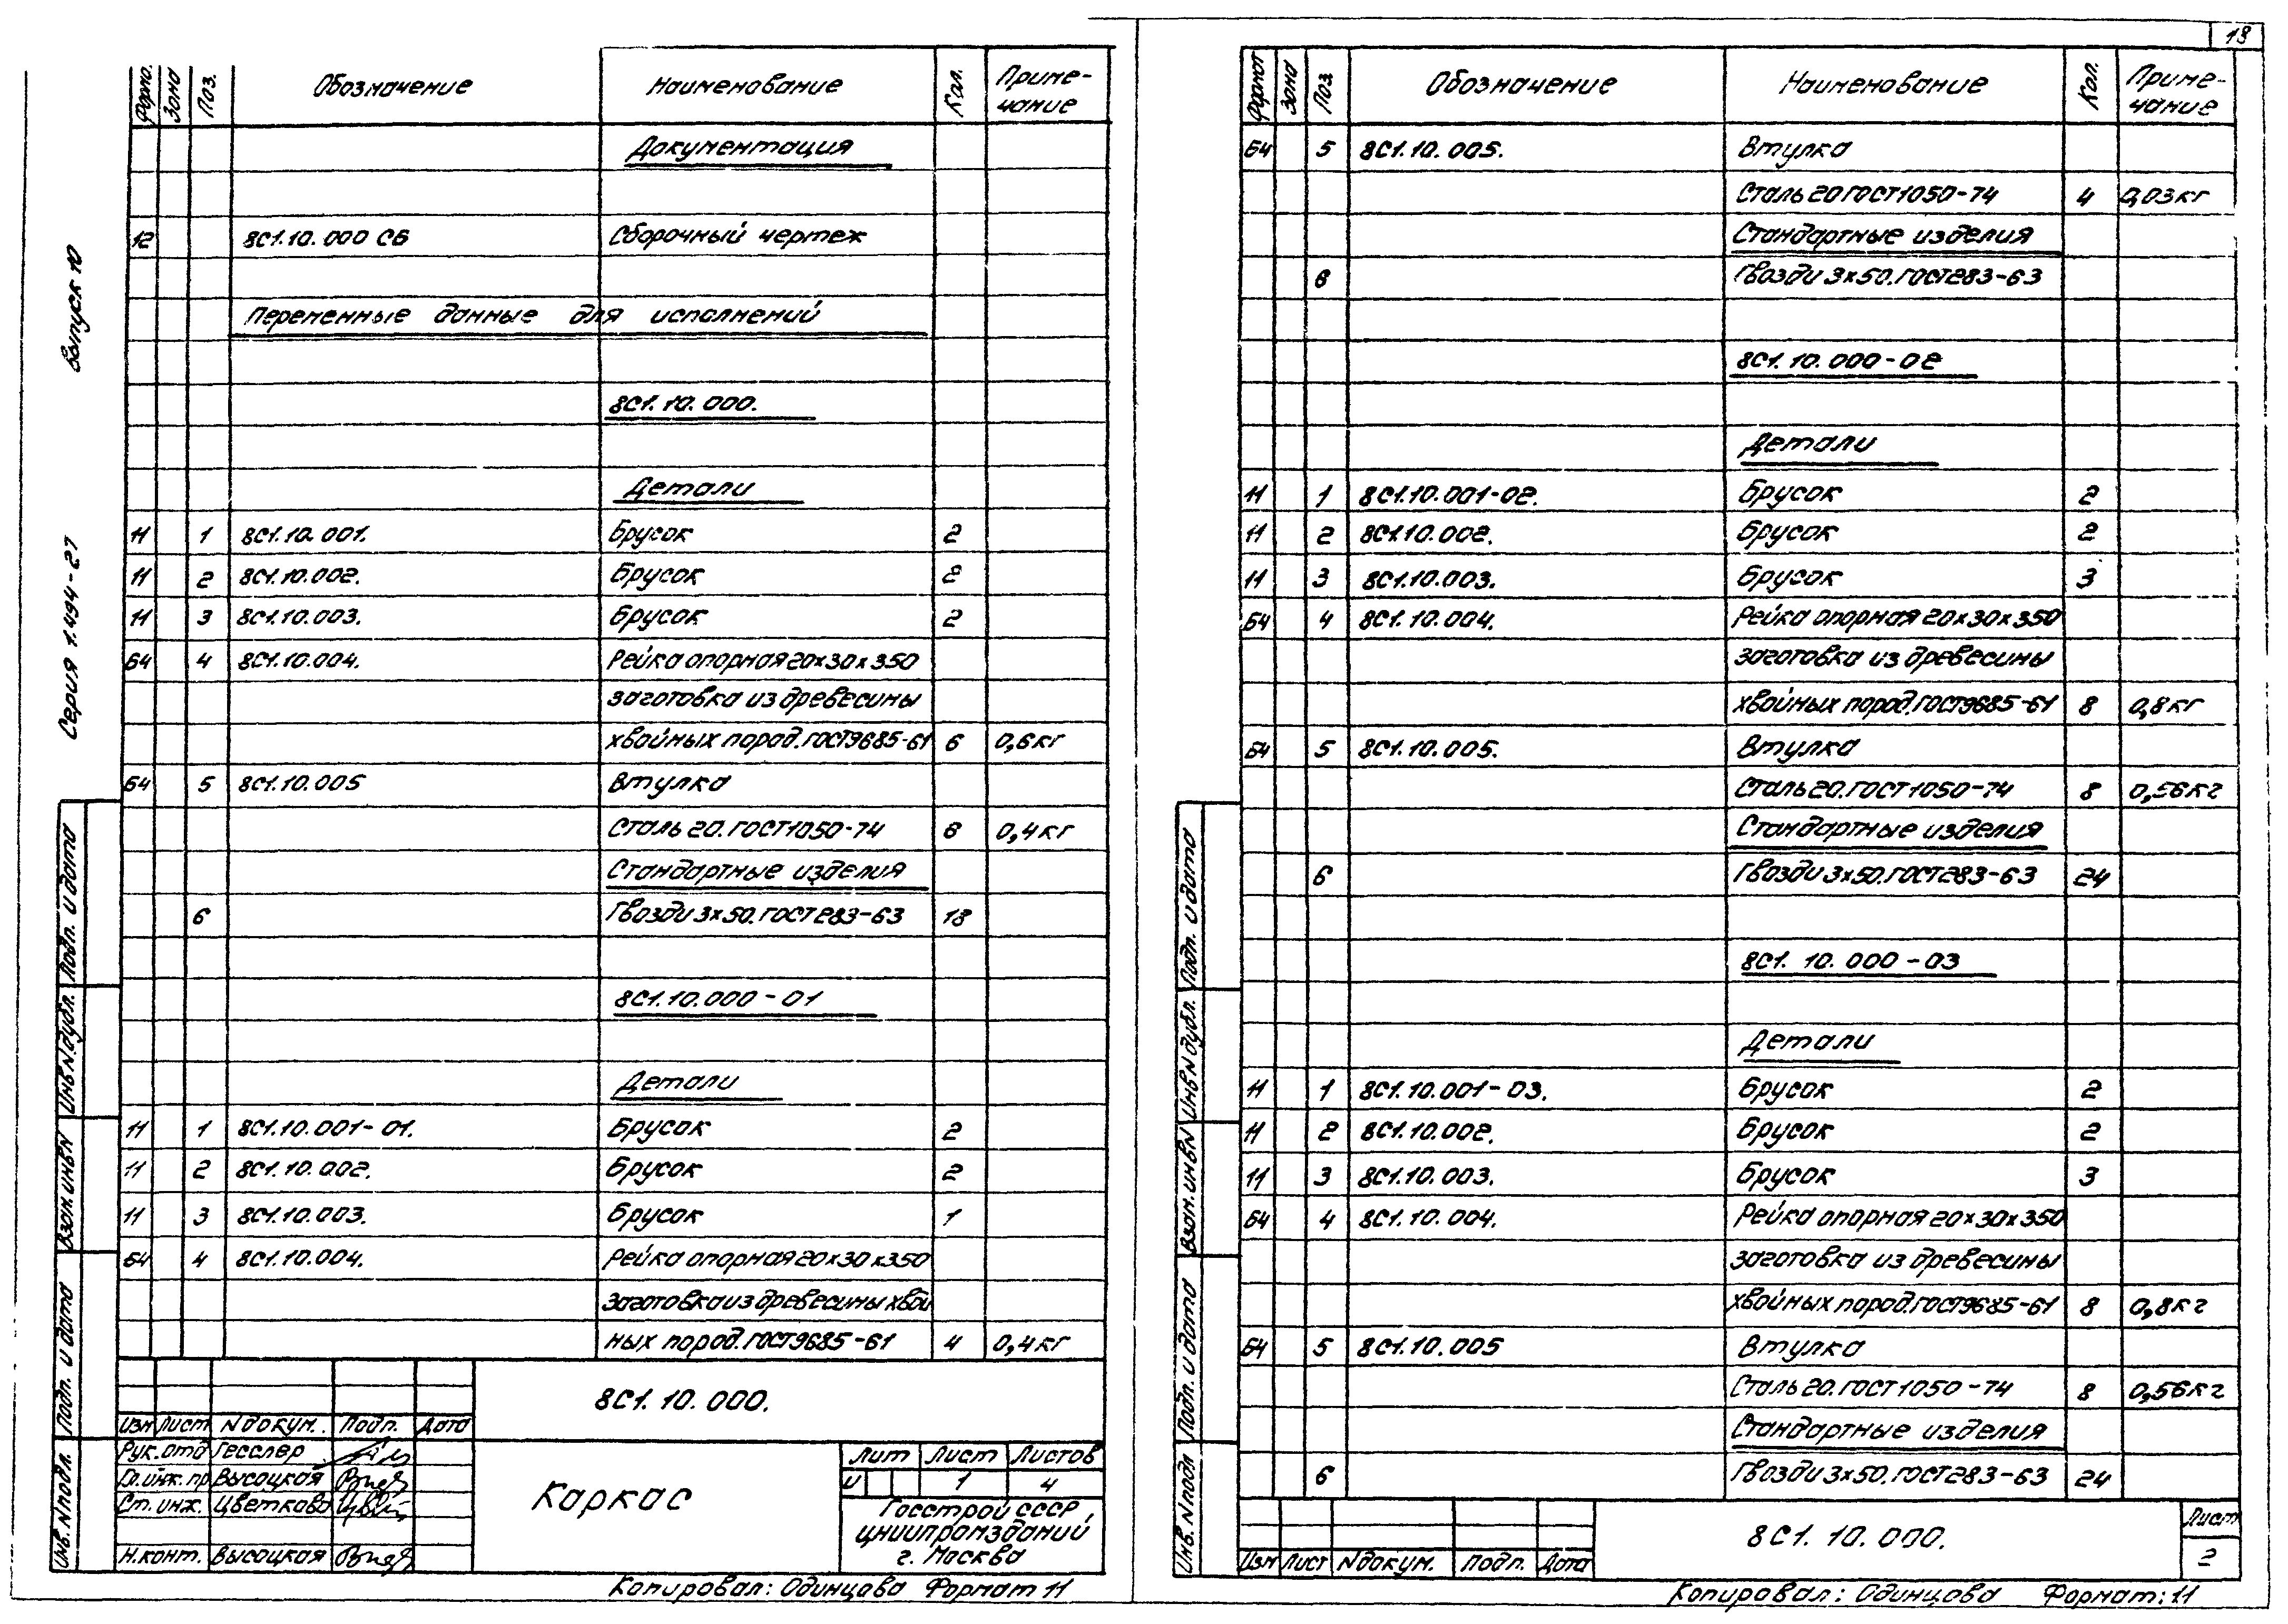 Серия 1.494-27 Выпуск 10
Формо. Зона Поз. Обозначение Наименование Кол. Приме-
чание
Документация
12 8С1.10.000 СБ Сборочный чертеж
Переменные данные для исполнений
8С1.10.000.
Детали
11 1 8С1.10.001. Брусок 2
11 2 8С1.10.002. Брусок 2
11 3 8С1.10.003. Брусок 2
Б4 4 8С1.10.004. Рейка опорная 20х30х350
заготовка из древесины
хвойных пород.ГОСТ9685-61 6 0,6кг
Б4 5 8С1.10.005 Втулка
Сталь 20.ГОСТ1050-74 6 0,4кг
Стандартные изделия
6 Гвозди 3х50.ГОСТ283-63 18
8С1.10.000-01
Детали
11 1 8С1.10.001-01. Брусок 2
11 2 8С1.10.002. Брусок 2
11 3 8С1.10.003. Брусок 1
Б4 4 8С1.10.004. Рейка опорная 20х30х350
Заготовка из древесины хвой
ных пород.ГОСТ9685-61 4 0,4кг
8С1.10.000.
Изм Лист N докум. Подп. Дата
Рук.отд Гесслер
Гл.инж.пр Высоцкая
Ст.инж. Цветкова
Н.конт. Высоцкая
Каркас
Лит Лист Листов
И 1 4
Госстрой СССР
ЦНИИПРОМЗДАНИЙ
г. Москва
Инв.N подл. Подп. и дата Взам.инв N Инв N дубл. Подп. и дата
Копировал: Одинцова Формат 11
13
Формат Зона Поз Обозначение Наименование Кол. Приме-
чание
Б4 5 8С1.10.005. Втулка
Сталь 20 ГОСТ1050-74 4 0,03кг
Стандартные изделия
6 Гвозди 3х50.ГОСТ283-63
8С1.10.000-02
Детали
11 1 8С1.10.001-02. Брусок 2
11 2 8С1.10.002. Брусок 2
11 3 8С1.10.003. Брусок 3
Б4 4 8С1.10.004. Рейка опорная 20х30х350
заготовка из древесины
хвойных пород.ГОСТ9685-61 8 0,8кг
Б4 5 8С1.10.005. Втулка
Сталь 20.ГОСТ1050-74 8 0,56кг
Стандартные изделия
6 Гвозди 3х50.ГОСТ283-63 24
8С1.10.000-03
Детали
11 1 8С1.10.001-03. Брусок 2
11 2 8С1.10.002. Брусок 2
11 3 8С1.10.003. Брусок 3
Б4 4 8С1.10.004. Рейка опорная 20х30х350
заготовка из древесины
хвойных пород.ГОСТ9685-61 8 0,8кг
Б4 5 8С1.10.005 Втулка
Сталь 20.ГОСТ1050-74 8 0,56кг
Стандартные изделия
6 Гвозди 3х50.ГОСТ283-63 24
8С1.10.000.
Изм Лист N докум. Подп. Дата
Лист
2
Инв.N подл Подп. и дата Взам.инв N Инв N дубл. Подп. и дата
Копировал: Одинцова Формат: 11